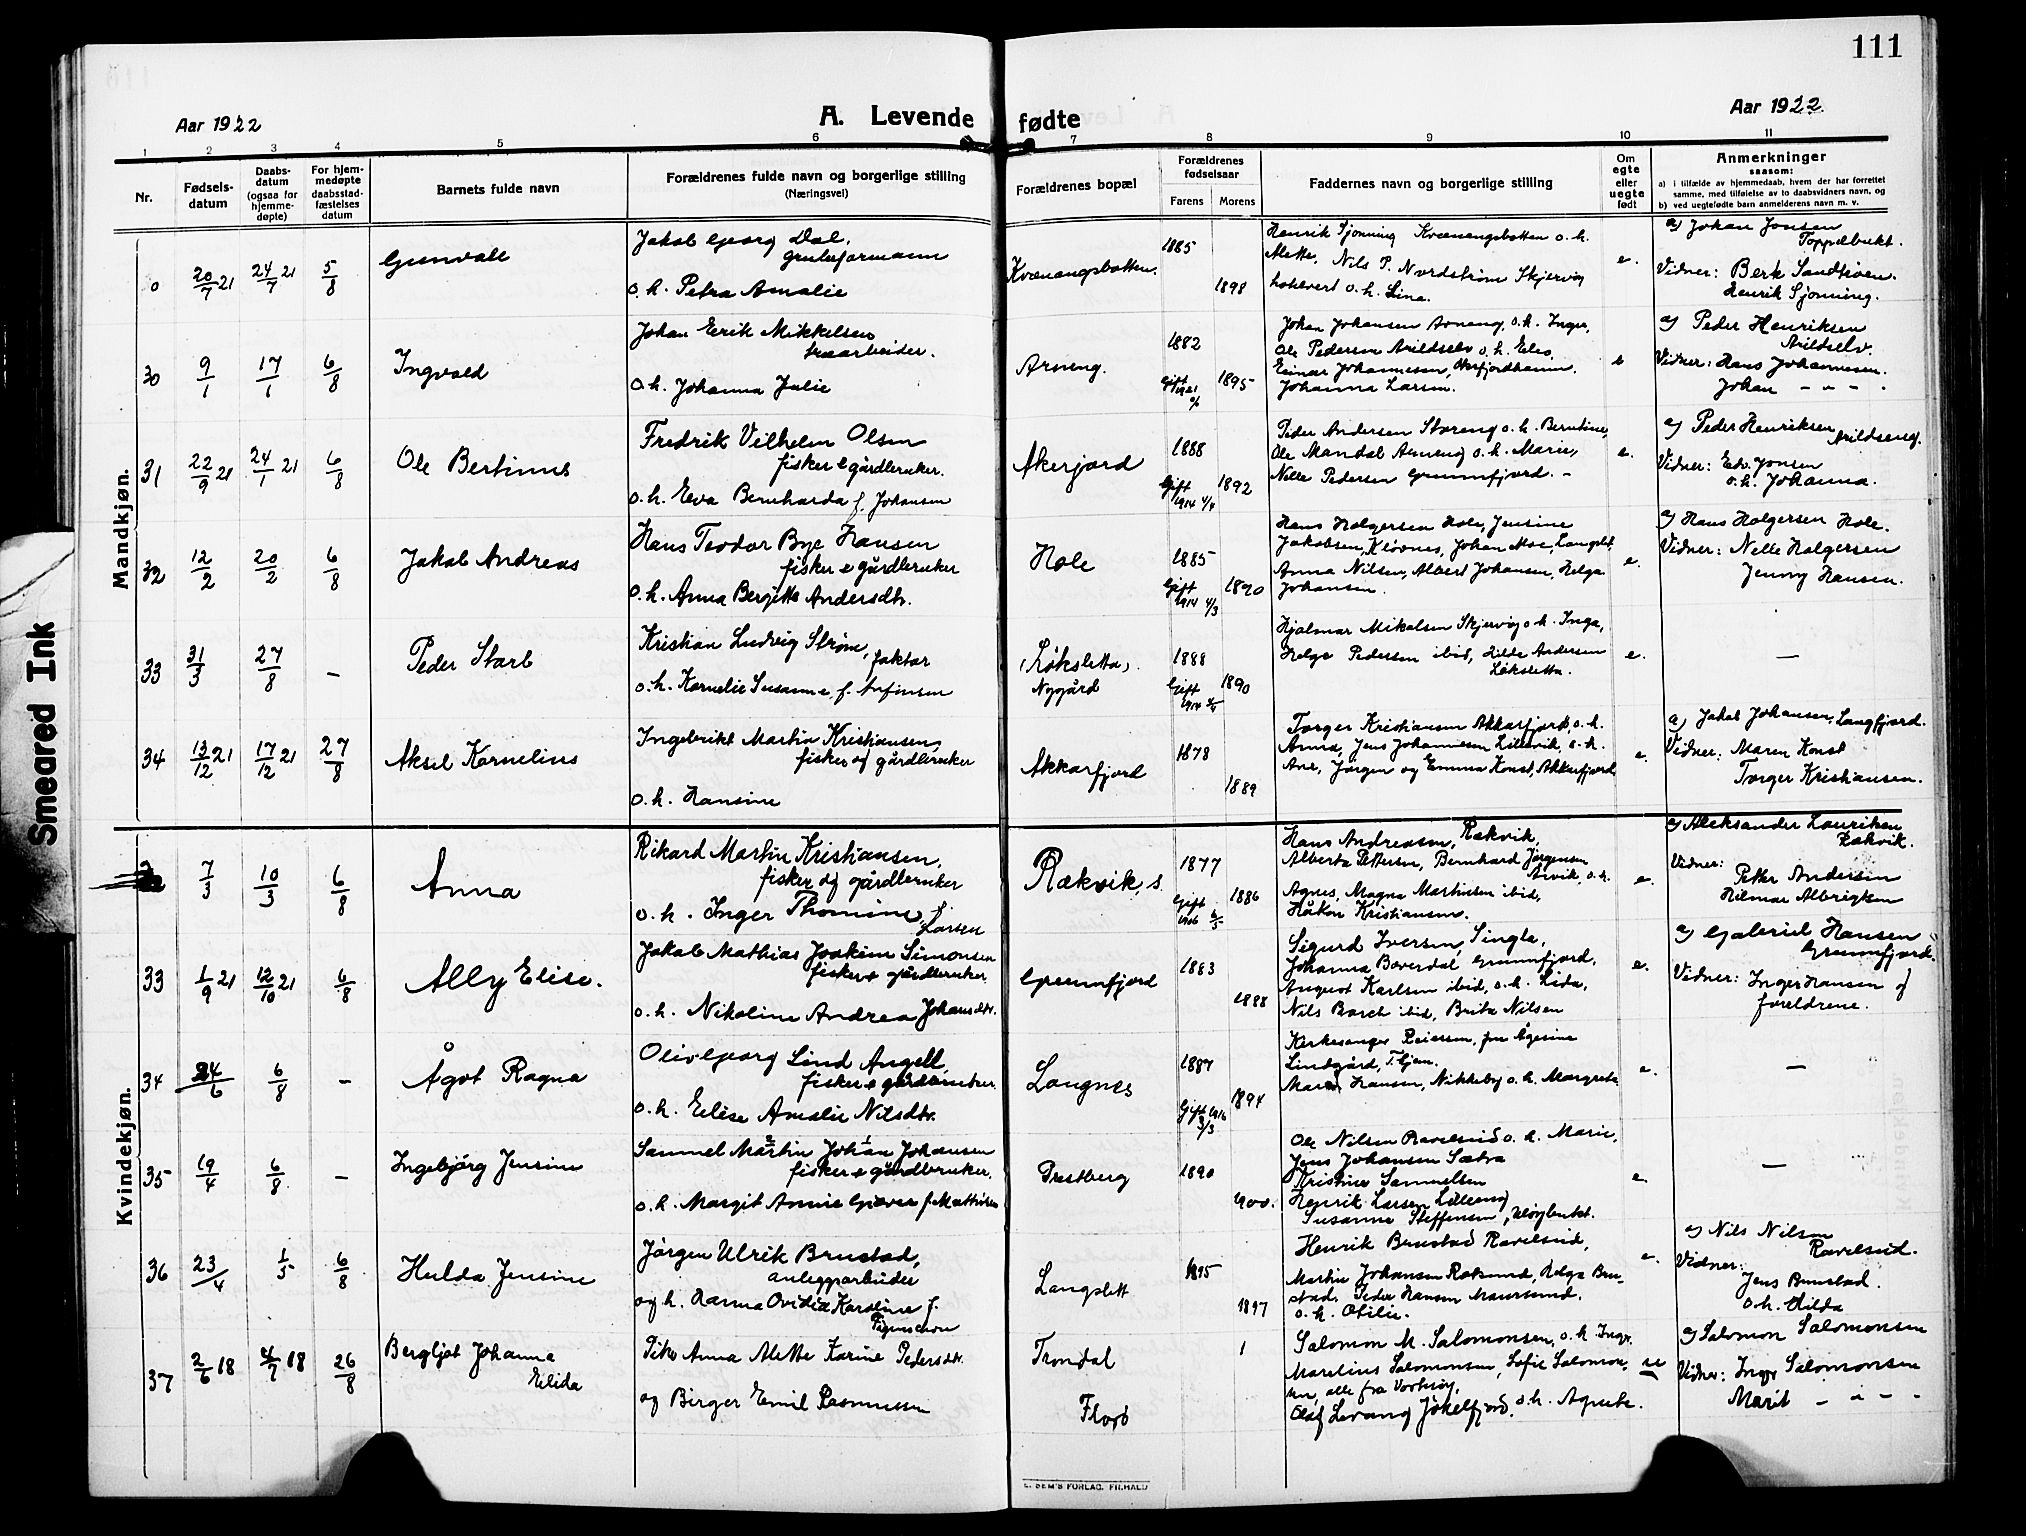 111
Aar 1922
A. Levende fødte
Aar 1922
1 2 3 4 5 6 7 8 9 10 11
Nr.
Fødsels-
datum
Daabs-
datum
(ogsaa for
hjemme-
døpte)
For hjem-
medøpte
daabsstad-
fæstelses
datum
Barnets fulde navn
Forældrenes fulde navn og borgerlige stilling
(Næringsvei)
Forældrenes bopæl
Forældrenes
fødselsaar
Farens Morens
Faddernes navn og borgerlige stilling
Om
egte
eller
uegte
født
Anmerkninger
saasom:
a) i tilfælde av hjemmedaab, hvem der har forrettet
samme, med tilføielse av to daabsvidners navn, og
b) ved uegtefødte barn anmelderens navn m. v.
Mandkjøn.
0 20/7 21 24/7 21 5/8 Gunvall
Jakob Georg Dal,
gruveformann
o.h. Petra Amalie
Kvænangsbotten.
1885
1898
Henrik Sjønning Kvænangsbotten o.h.
Alette, Nils P. Nordstrøm Skjervøy
o.h. Lina.
e.
a) Johan Jonsen
Toppelbukt.
Vidner: Berk Sandtrøen.
Henrik Sjønning.
30 9/1 17/1 6/8 Ingvald
Johan Erik Mikkelsen
o.h. Johanna Julie
Arneng.
1882
Gift 1921
1895
Johan Johansen Arneng, o.h. Inger,
Ole Pedersen Arildselv o.h. Elen,
Einar Johannesen, Akerfjordhamn.
Johanna Larsen.
e
a) Peder Henriksen
Arildselv.
Vidner: Hans Johannesen.
Johan — " — " .
31 22/9 21 24/1 21 6/8 Ole Bertinus
Fredrik Vilhelm Olsen
fisker & gårdbruker.
o.h. Eva Bernharda f. Johansen
Akerfjord
1888
Gift 1914 4/4
1892
Peder Andersen Storeng o.h. Berntine,
Ole Mandal Arneng o.h. Marie,
Nelle Pedersen Grunnfjord. –
e.
a) Peder Henriksen
Arildseng.
Vidner: Edv. Jonsen
o.h. Johanna.
32 12/2 20/2 6/8 Jakob Andreas
Hans Teodor Bye Hansen
fisker & gårdbruker
o.h. Anna Bergitte Andersdtr.
Hole
1885
Gift 1914 4/3
1890
Hans Holgersen Hole, Jensine
Jakobsen, Kløvnes, Johan Moe, Langslet
Anna Nilsen, Albert Johansen, Helga
Johansen.
e.
a) Hans Holgersen Hole.
Vidner: Nelle Holgersen
Jenny Hansen.
33 31/3 27/8 – Peder Starb
Kristian Ludvig Strøm,
faktor
o.h. Kornelie Susanne f. Arfinsen
(Løksletta)
Nygård
1888
Gift 1914
1890
Hjalmar Mikalsen Skjervøy o.h. Inga,
Helge Pedersen ibid, Hilda Andersen
Løksletta.
e.
—
34 13/12 21 17/12 21 27/8 Aksel Kornelius
Ingebrikt Martin Kristiansen,
fisker og gårdbruker
o.h. Hansine
Akkarfjord
1878
1889
Torger Kristiansen Akkarfjord, o.h.
Anna, Jens Johannesen Lillevik, o.h.
Ane, Jørgen og Emma Konst, Akkarfjord
e.
a) Jakob Johansen, Langfjord.
Vidner: Maren Konst
Torger Kristiansen.
Kvindekjøn.
7/3 10/3 6/8 Anna
Rikard Martin Kristiansen,
fisker og gårdbruker
o.h. Inger Thomine f.
Larsen
Rakvik, s.
1877
Gift 1906
1886
Hans Andreassen, Rakvik,
Alberta Pettersen, Bernhard Jørgensen
Arvik, o.h.
Agnes, Magna Martinsen ibid,
Håkon Kristiansen.
e.
a) Aleksander Lauriksen
Rakvik.
Vidner:
Petter Andersen
Hilmar Albrigtsen
33 1/9 21 12/10 21 6/8 Ally Elise.
Jakob Mathias Joakim Simonsen
fisker & gårdbruker
o.h. Nikoline Andrea Johansdtr.
Grunnfjord
1883
1888
Sigurd Iversen, Singla,
Johanna Bøverdal Grunnfjord,
August Karlsen ibid, o.h. Lida,
Nils Borch ibid, Brita Nilsen
e.
a) Gabriel Hansen
Grunnfjord.
Vidner: Inger Hansen og
foreldrene.
34 24/6 6/8 – Ågot Ragna
Oliv Georg Lind Angell,
fisker & gårdbruker.
o.h. Elise Amalie Nilsdtr.
Langnes
1887
Gift 1916 3/3
1894
Kirkesanger Reiersen, frn Ågesine
Lindgård,
Hansen, Nikkeby o.h. Margrete
e.
—
35 19/4 6/8 – Ingebjørg Jensine
Samuel Martin Johan Johansen
fisker & gårdbruker.
o.h. Margit Annie Giæver f. Mathisen
Prestberg
1890
1900.
Ole Nilsen Ravelseid o.h. Marie,
Jens Johansen Sætra
Kristine Samuelsen
Henrik Larsen Lilleeng
Susanne Steffensen,
e.
—
36 23/4 1/5 6/8 Hulda Jensine
Jørgen Ulrik Brustad,
anleggsarbeider
og h. Hanna Ovidia Karoline f.
Langslett
1895
1897
Henrik Brustad Ravelseid,
Martin Johansen Rotsund, Helga Bru-
stad, Peder Hansen Maursund,
o.h. Otilie.
e.
a) Nils Nilsen
Ravelseid.
Vidner:
Jens Brustad.
o.h. Hilda
37 2/6 18 4/7 18 26/8 Bergljot Johanna
Elida
Pike Anna Alette Karine Pedersdtr.
og Birger Emil Rasmussen
Trondal
Florø
Salomon M. Salomonsen, o.h. Inger,
Marelius Salomonsen, Sofie Salomon-
sen, alle fra Vorterøy,
Olaf Levang Jøkelfjord, o.h. Agnete.
ue
a) Salomon Salomonsen
Vidner: Inger Salomonsen
Marit — " —
E. SEM'S FORLAG. FR.HALD
Smeared Ink